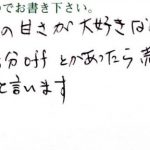 でお書き下さい。
の甘さが大好きな
分offとかあったら
と言います